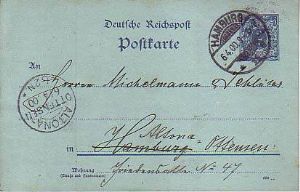 Deutsche Reichspost
Postkarte
HAMBURG
6.4.00
An
Herren Michelmann & Schlüter
ALTONA
OTTENSEN
Altona-
in Hamburg-Ottensen
Wohnung
(Straße und Hausnummer)
Friedensstr. No 47